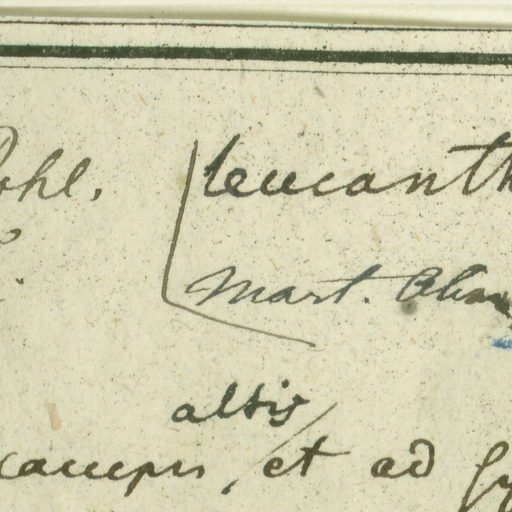 ohl. leucanth
Mart.
altis
campis, et ad